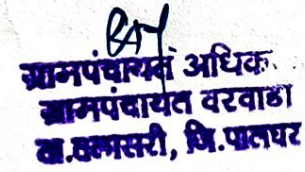 ग्रामपंचायत अधिक
ग्रामपंचायत वरवाडा
ता.तलासरी, जि.पालघर